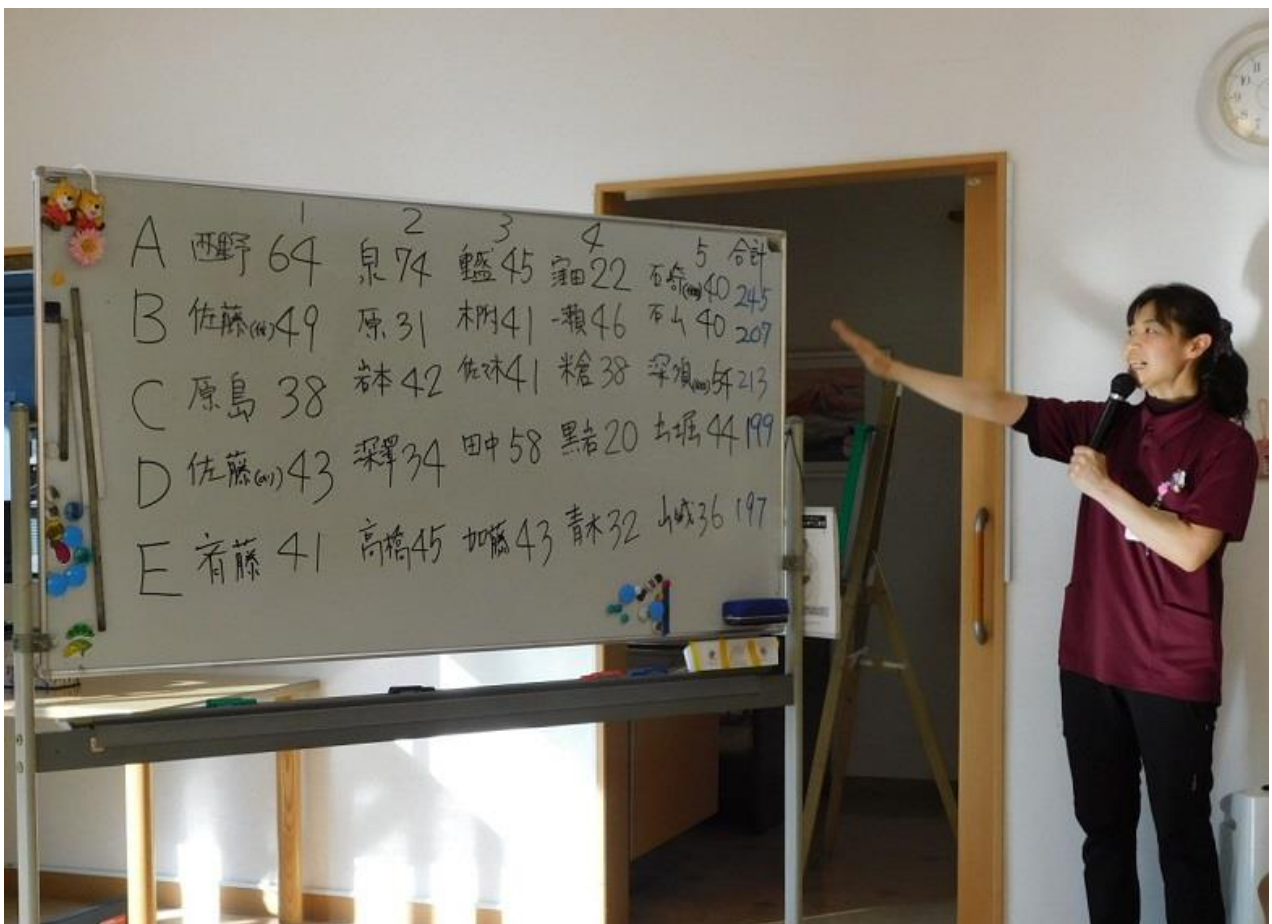 1 2 3 4 5 合計
A 西野 64 泉 74 鑑 45 窪田 22 石崎 40 245
B 佐藤 49 原 31 木附 41 一瀬 46 石山 40 207
C 原島 38 岩本 42 佐々木 41 米倉 38 深須 54 213
D 佐藤 43 深澤 34 田中 58 黒岩 20 土堀 44 199
E 斉藤 41 高橋 45 加藤 43 青木 32 山城 36 197
11
10
9
8